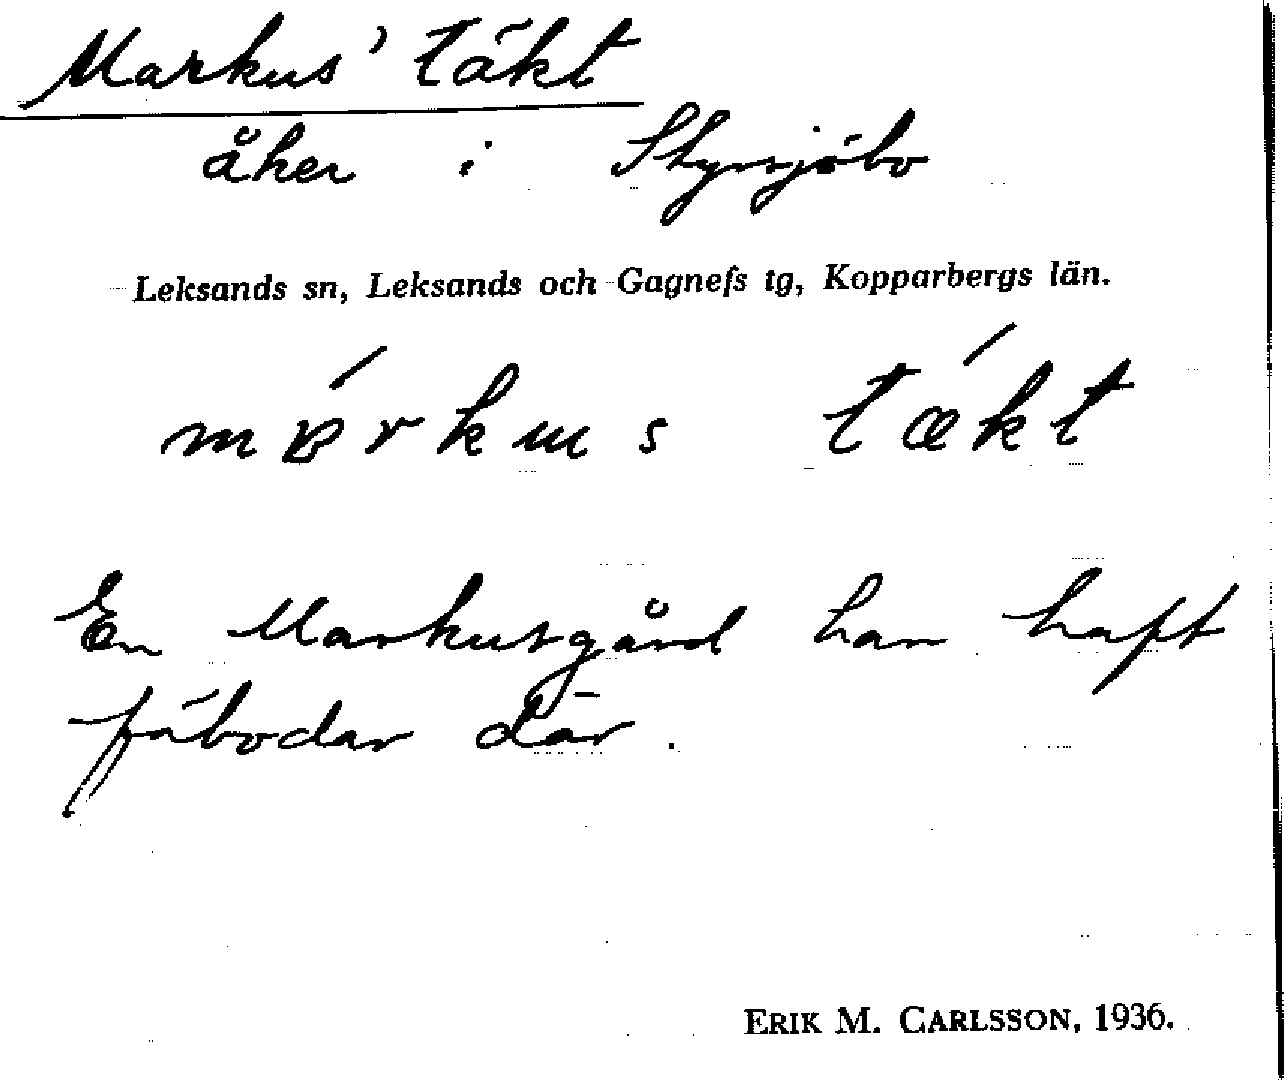 Markus' täkt
åker i Styrsjöbo
Leksands sn, Leksands och Gagnefs tg, Kopparbergs län.
márkus tǽkt
En Markusgård har haft
fäbodar där.
ERIK M. CARLSSON, 1936.